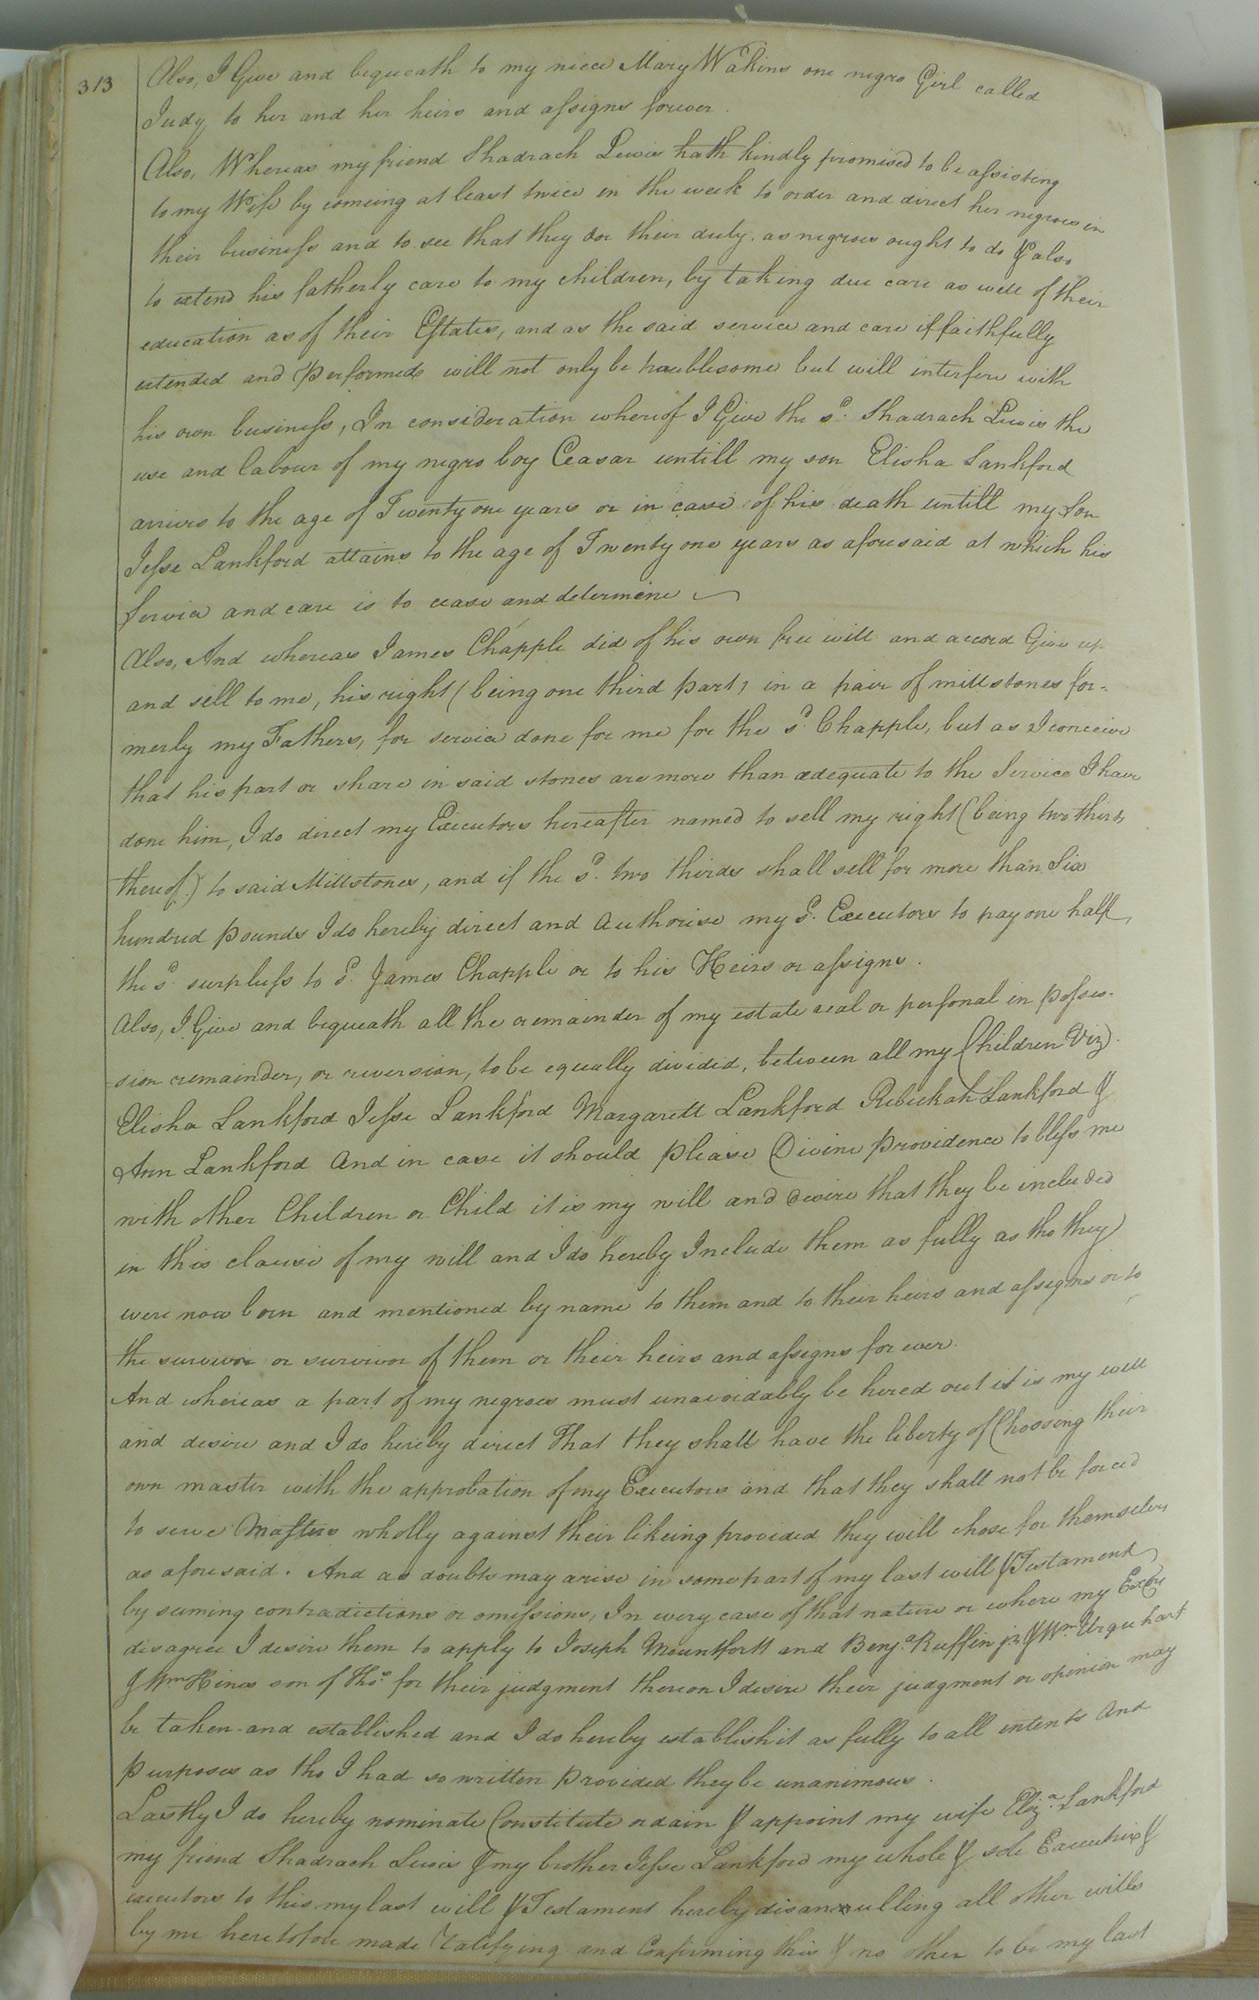 313
Also, I Give and bequeath to my niece Mary Watkins one negro Girl called
Judy to her and her heirs and assigns forever.
Also, Whereas my friend Shadrach Lewis hath kindly promised to be assisting
to my Wife by comeing at least twice in the week to order and direct her negroes in
their business and to see that they doe their duty, as negroes ought to do & also
to extend his fatherly care to my children, by taking due care as well of their
education as of their Estates, and as the said service and care if faithfully
extended and performed will not only be troublesome but will interfere with
his own business, In consideration whereof I Give the sd. Shadrach Lewis the
use and labour of my negro boy Ceasar untill my son Elisha Lankford
arrives to the age of Twenty one years or in case of his death untill my Son
Jesse Lankford attains to the age of Twenty one years as aforesaid at which his
Service and care is to cease and determine
Also, And whereas James Chapple did of his own free will and accord Give up
and sell to me, his right (being one third part) in a pair of millstones for-
merly my Fathers, for service done for me for the sd. Chapple, but as I conceive
that his part or share in said stones are more than adequate to the Service I have
done him, I do direct my Executors hereafter named to sell my right (being two thirds
thereof) to said Millstones, and if the sd. two thirds shall sell for more than Six
hundred pounds I do hereby direct and Authorise my sd. Executors to pay one half
the sd. surpluss to sd. James Chapple or to his Heirs or assigns.
Also, I Give and bequeath all the remainder of my estate real or personal in posses-
sion remainder, or reversion, to be equally divided, between all my Children Viz).
Elisha Lankford Jesse Lankford Margarett Lankford Rebeckah Lankford &
Ann Lankford And in case it should please Divine providence to bless me
with other Children or Child it is my will and desire that they be included
in this clause of my will and I do hereby Include them as fully as tho they
were now born and mentioned by name to them and to their heirs and assigns or to
the survivor or survivor of them or their heirs and assigns for ever.
And whereas a part of my negroes must unavoidably be hired out it is my will
and desire and I do hereby direct That they shall have the liberty of Choosing their
own master with the approbation of my Executors and that they shall not be forced
to serve Masters wholly against their likeing provided they will chose for themselves
as aforesaid. And as doubts may arise in some part of my last will & Testament
by seeming contradictions or omissions, In every case of that nature or where my Exors
disagree I desire them to apply to Joseph Mountfortt and Benja. Ruffin jr & Wm. Urquhart
& Wm Hines son of Thos. for their judgment thereon I desire their judgment or opinion may
be taken and established and I do hereby establish it as fully to all intents And
purposes as tho I had so written provided they be unanimous.
Lastly I do hereby nominate Constitute ordain & appoint my wife Eliza. Lankford
my friend Shadrach Lewis & my brother Jesse Lankford my whole & sole Executrix &
executors to this my last will & Testament hereby disannulling all other wills
by me heretofore made Ratifying and Confirming this & no other to be my last